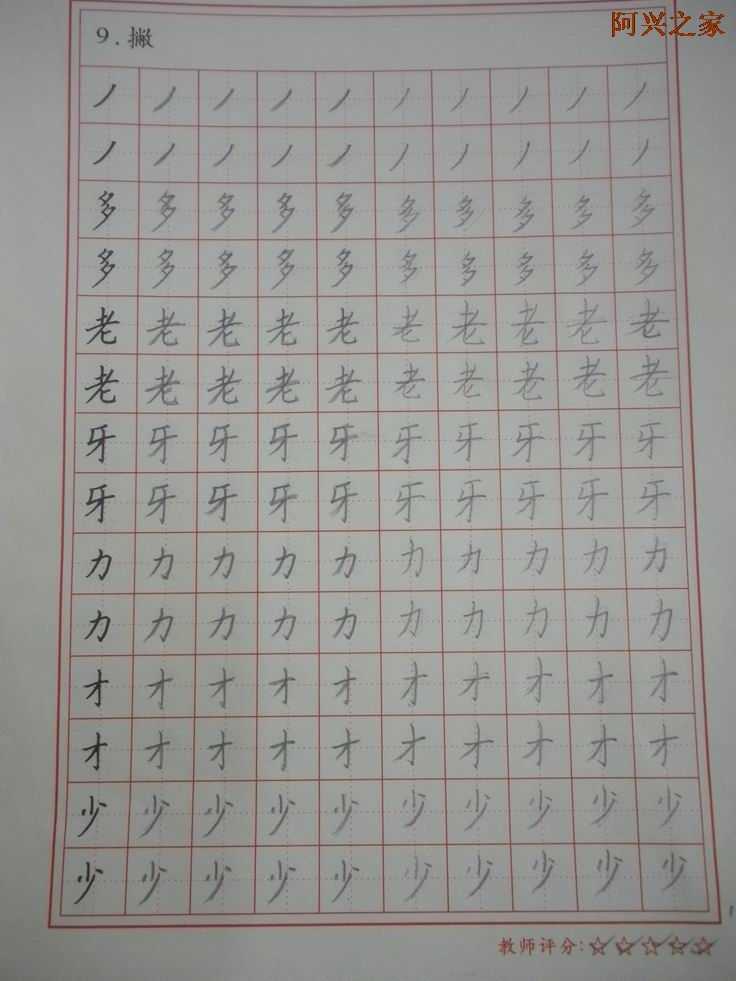 阿兴之家
9.撇
丿丿丿丿丿丿丿丿丿丿
丿丿丿丿丿丿丿丿丿丿
多多多多多多多多多多
多多多多多多多多多多
老老老老老老老老老老
老老老老老老老老老老
牙牙牙牙牙牙牙牙牙牙
牙牙牙牙牙牙牙牙牙牙
力力力力力力力力力力
力力力力力力力力力力
才才才才才才才才才才
才才才才才才才才才才
少少少少少少少少少少
少少少少少少少少少少
教师评分:☆☆☆☆☆